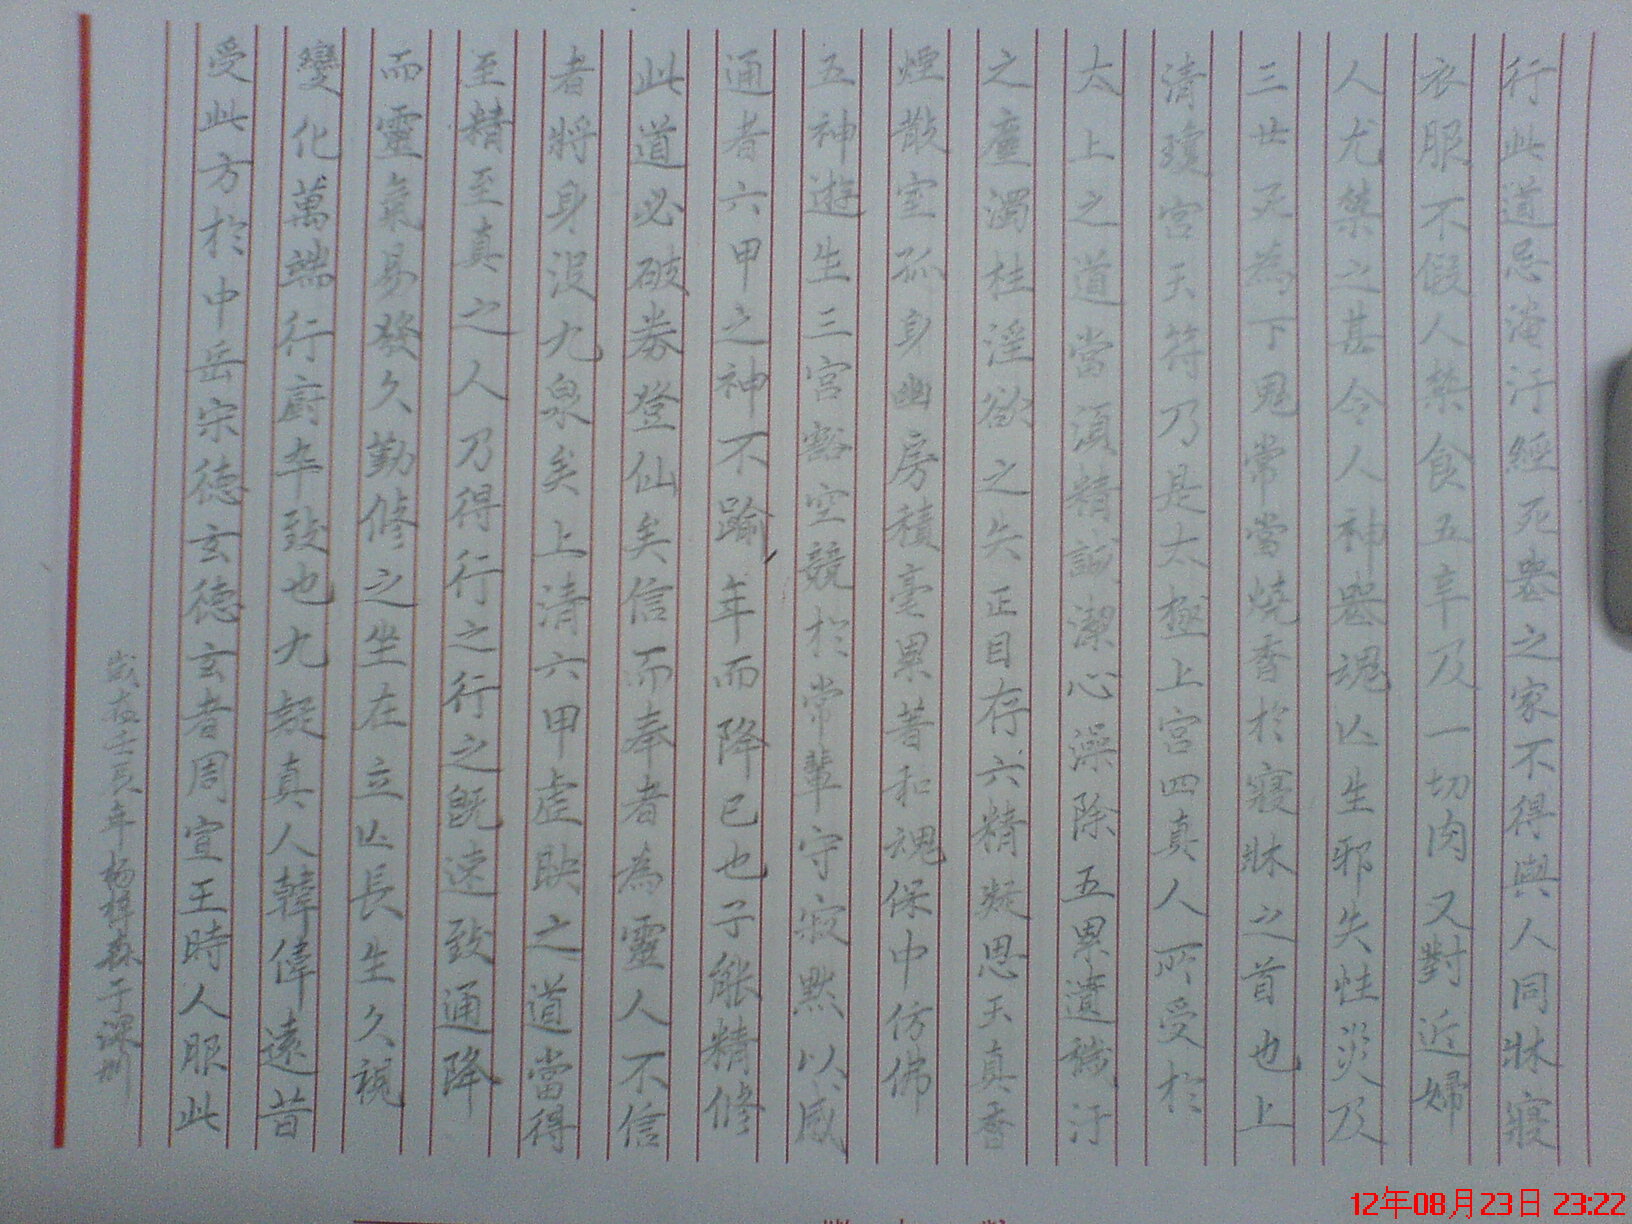 行此道忌淹汙經死丧之家不得與人同牀寢
衣服不假人禁食五辛及一切肉又對近婦
人尤禁之甚令人神喪魂亾生邪失性災及
三世死為下鬼常當燒香於寢牀之首也上
清瓊宮天符乃是太極上宮四真人所受於
太上之道當須精誠潔心澡除五累遺穢汙
之塵濁杜淫欲之失正目存六精凝思天真香
煙散室孤身幽房積毫累著和魂保中仿佛
五神遊生三宮豁空競於常輩守寂默以感
通者六甲之神不踰年而降已也子能精修
此道必破券登仙矣信而奉者為靈人不信
者將身沒九泉矣上清六甲虛映之道當得
至精至真之人乃得行之行之既速致通降
而靈氣易發久勤修之坐在立亾長生久視
變化萬端行廚卒致也九疑真人韓偉遠昔
受此方於中岳宗德玄德玄者周宣王時人服此
年楊
12年08月23日 23:22